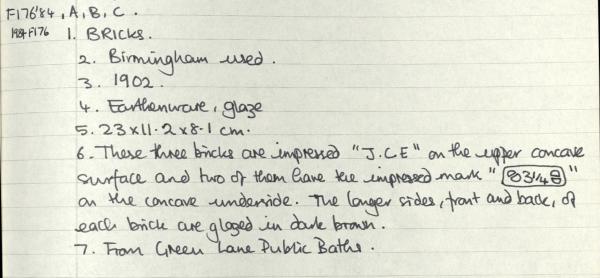 F176'84, A, B, C.
1984F176 1. BRICKS.
2. Birmingham used.
3. 1902.
4. Earthenware, glaze
5. 23 x 11.2 x 8.1 cm.
6. These three bricks are impressed "J.C.E" on the upper concave
surface and two of them have the impressed mark " "
on the concave underside. The larger sides, front and back, of
each brick are glazed in dark brown.
7. From Green Lane Public Baths.